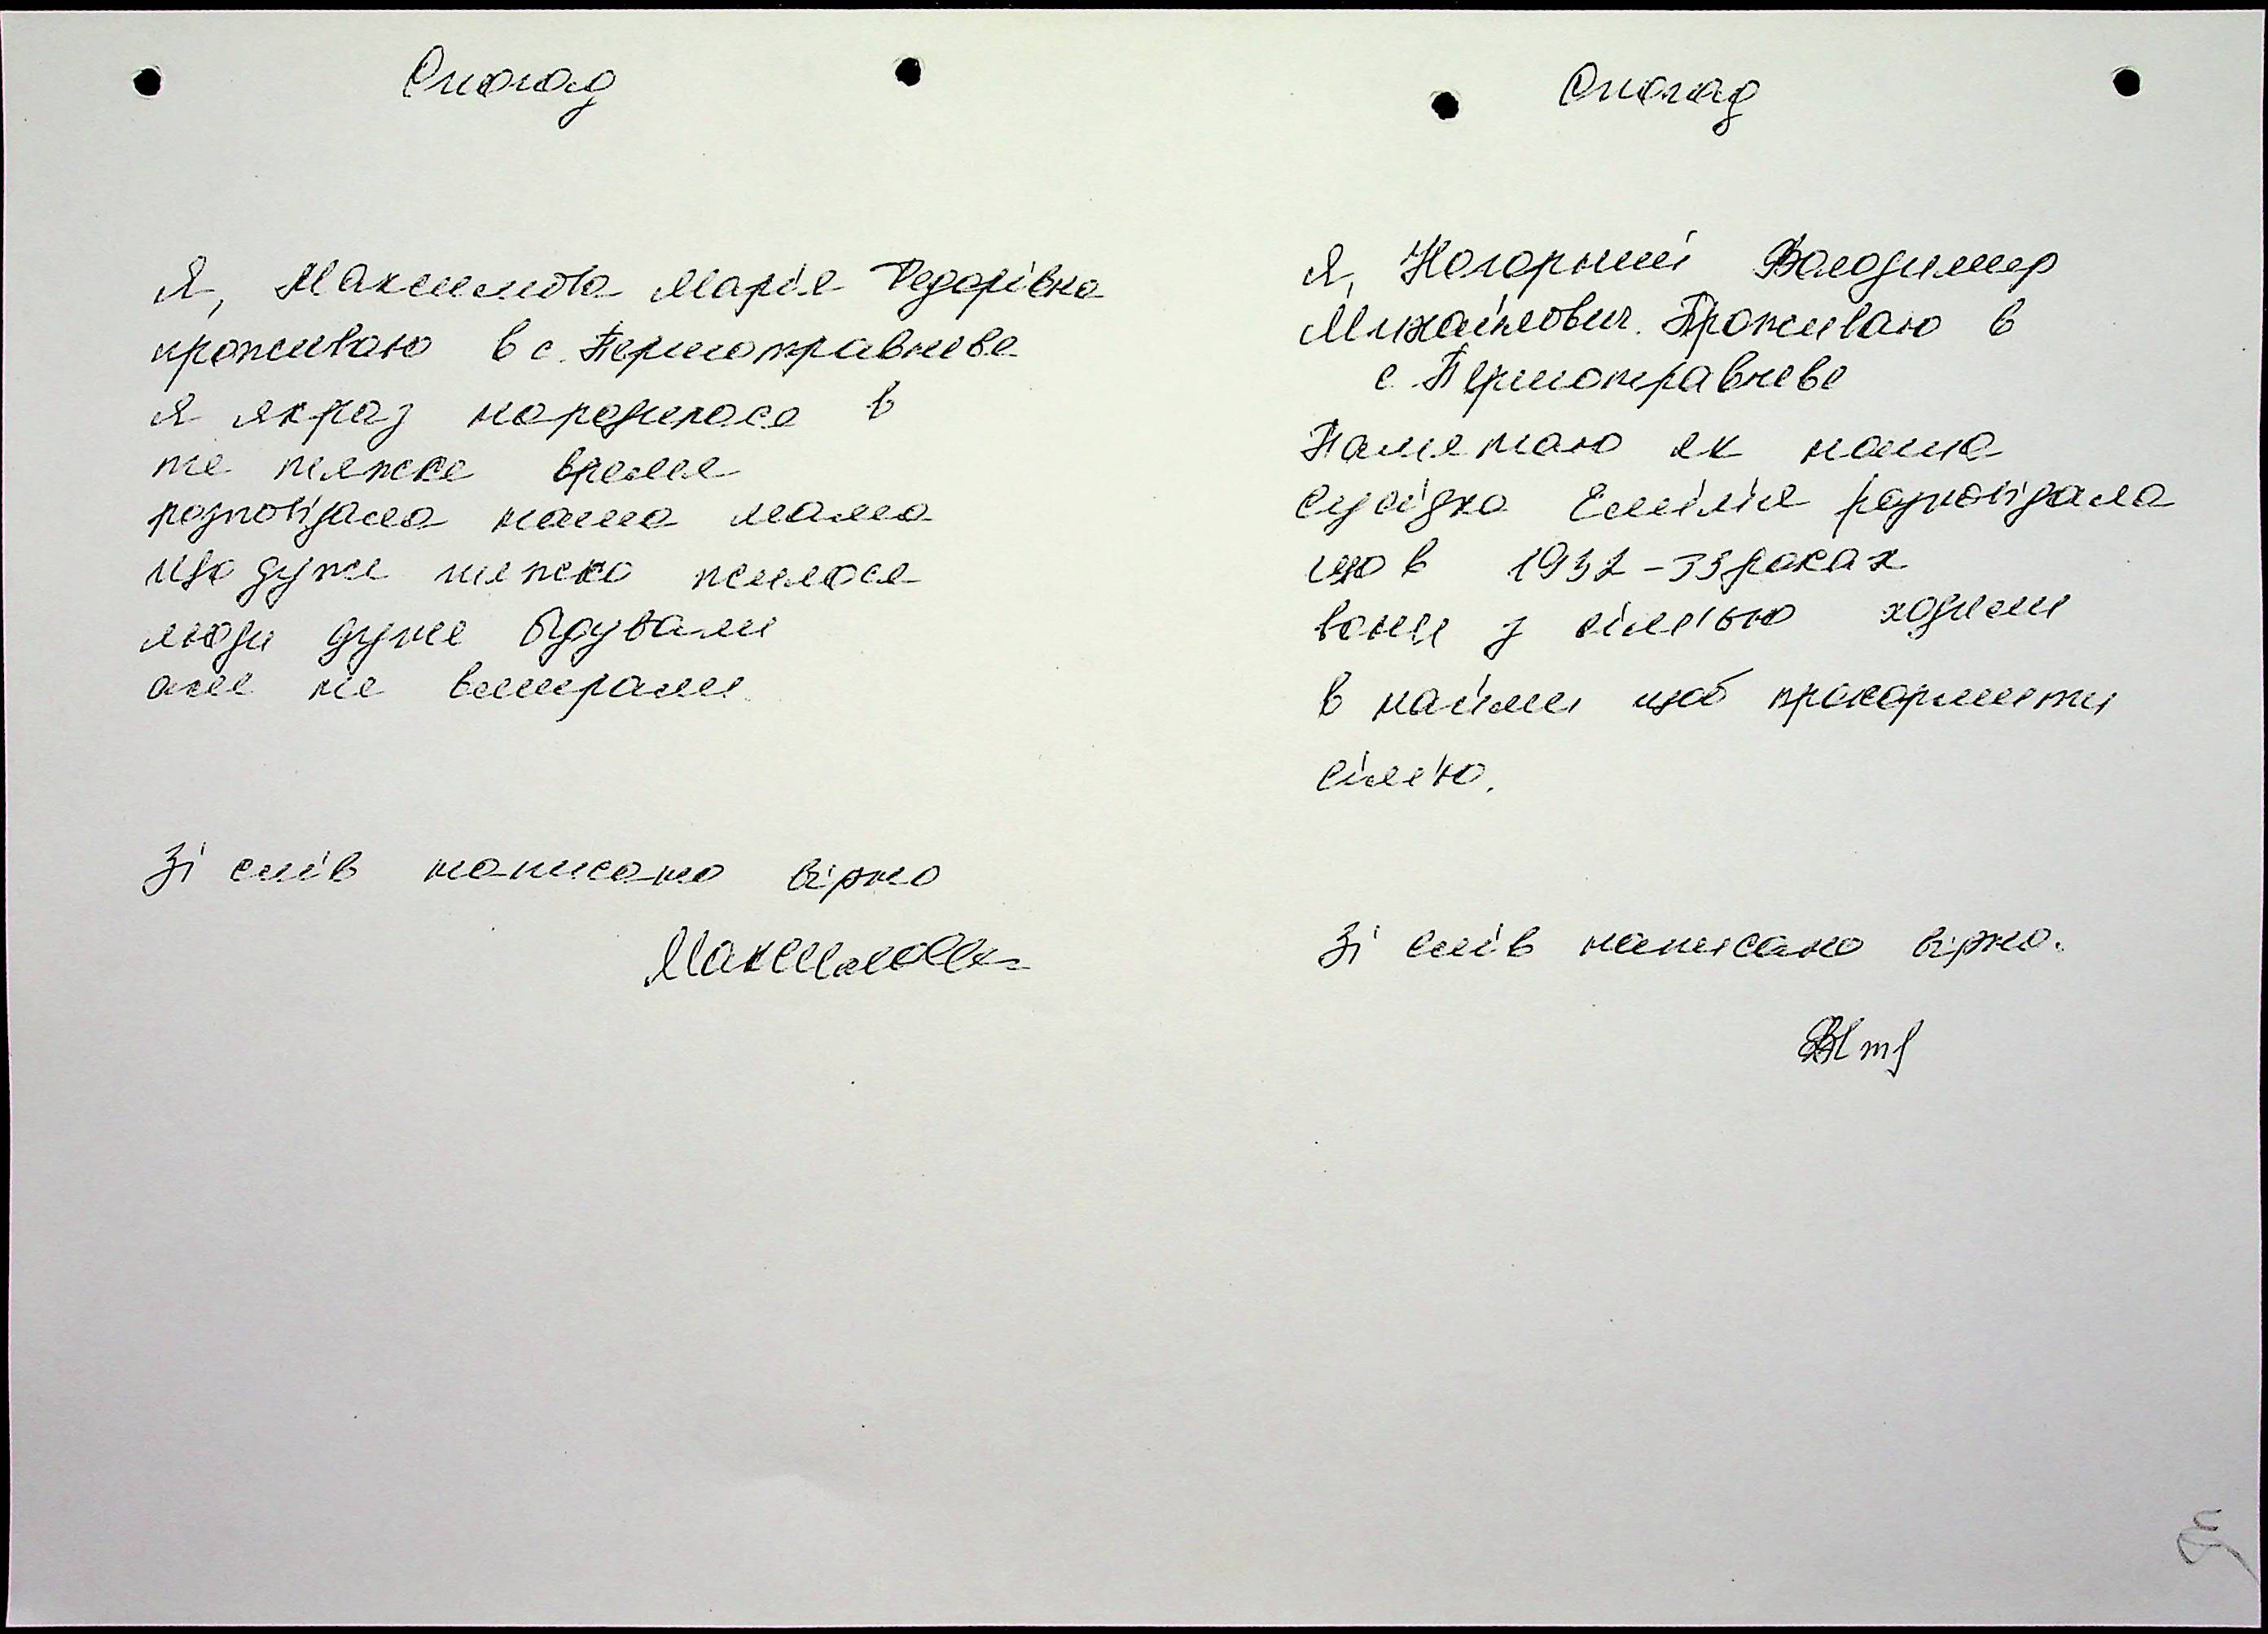 Спогад
Я, Максимова Марія Федорівна
проживаю в с. Першотравневе
я якраз народилася в
те тяжке время
розповідала наша мама
що дуже тяжко жилося
люди дуже бідували
але не вмирали
Зі слів написано вірно
Спогад
Я, Нагорний Володимир
Михайлович. Проживаю в
с. Першотравневе
Памятаю як наша
сусідка Емілія розповідала
що в 1932-33 роках
вони з сім'єю ходили
в найми щоб прокормити
сім'ю.
Зі слів написано вірно.